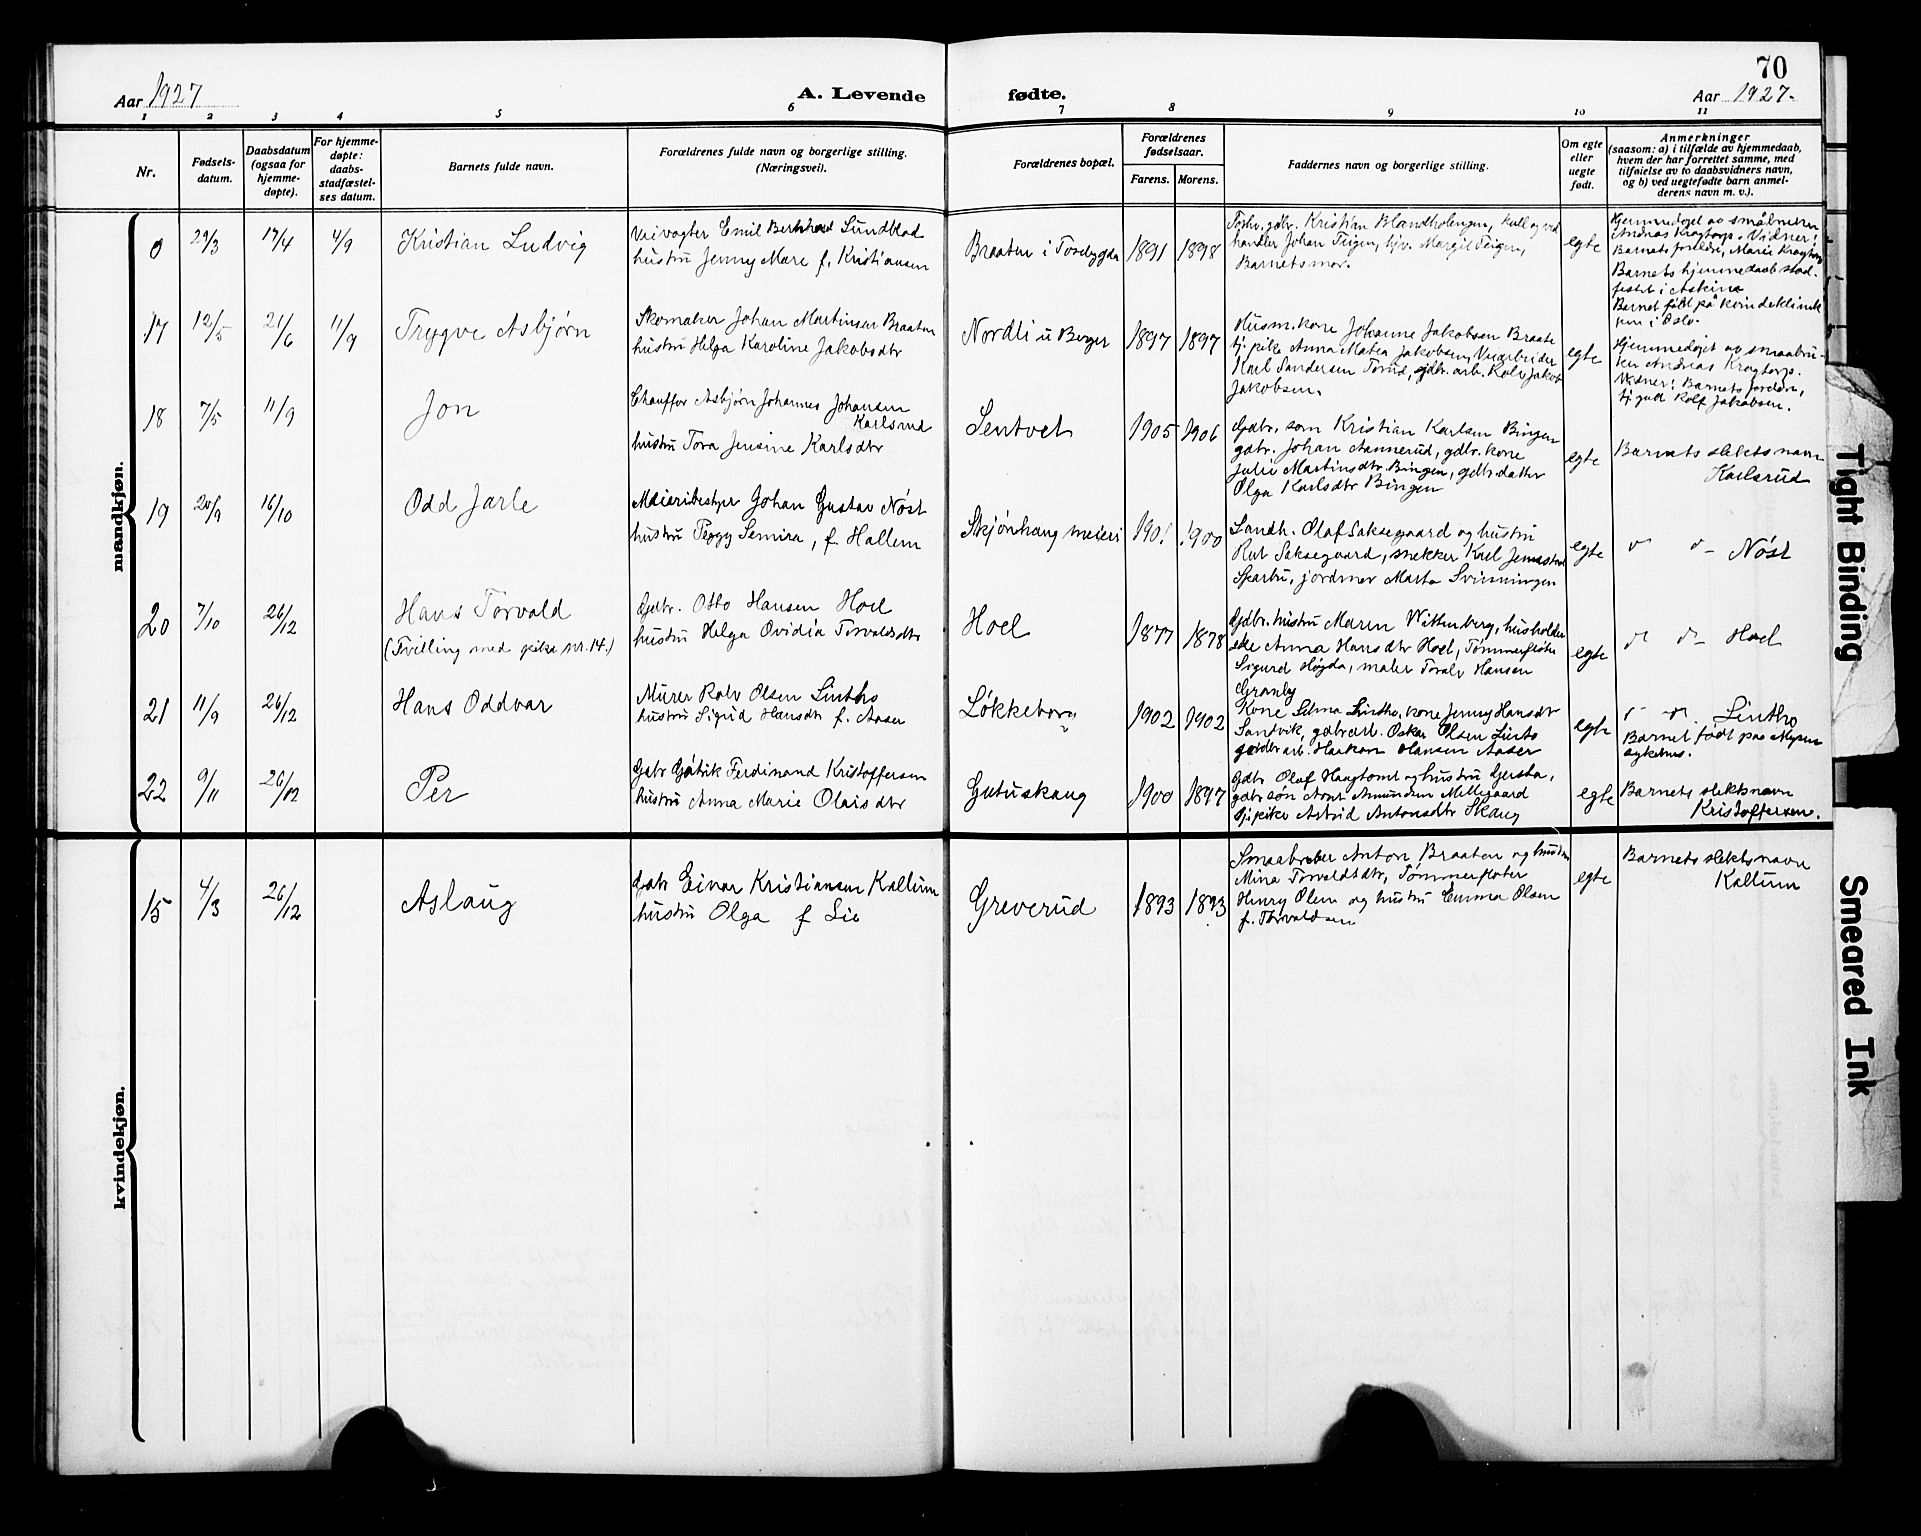 70
Aar 1927
A. Levende
fødte.
Aar 1927-
1 2 3 4 5 6 7 8 9 10 11
Nr.
Fødsels-
datum.
Daabsdatum
(ogsaa for
hjemme-
døpte).
For hjemme-
døpte:
daabs-
stadfæstel-
ses datum.
Barnets fulde navn.
Forældrenes fulde navn og borgerlige stilling.
(Næringsvei).
Forældrenes bopæl.
Forældrenes
fødselsaar.
Farens. Morens.
Faddernes navn og borgerlige stilling.
Om egte
eller
uegte
født.
Anmerkninger
(saasom: a) i tilfælde av hjemmedaab,
hvem der har forrettet samme, med
tilføielse av to daabsvidners navn,
og b) ved uegtefødte barn anmel-
derens navn m. v.).
mandkjøn.
0 29/3 17/4 4/9 Kristian Ludvig
Veivogter Emil Bernhard Sundblad
hustru Jenny Marie f. Kristiansen
Braaten i Tosebygda 1891 1898
gdbr. Kristian
handler Johan Teigen, hjv. Margit Teigen,
Barnets mor.
egte
Hjemmedøpt av småbruker
Andreas Krogtorp. Vidner:
Barnets foreldre, Marie Krogtorp
Barnets hjemmedaab stad-
festet i Askim
Barnet født på kvindeklinik-
ken i Oslo.
17 12/5 21/6 11/9 Trygve Asbjørn
Skomaker Johan Martinsen Braaten
hustru Helga Karoline Jakobsdtr
Nordli u Berger 1897 1897
Husm. kone Johanne Jakobsen Braate
tj. pike Anna Matea Jakobsen, Veiarbeider
Karl Sandersen Tosrud, gdbr. arb. Rolv Jakob
Jakobsen.
egte
Hjemmedøpt av smaabru-
ker Andreas Krogtorp.
Vidner: Barnets fordre,
tj. gutt Rolf Jakobsen.
18 7/5 11/9 Jon
Chauffør Asbjørn Johannes Johansen
Karlsrud
hustru Tora Jensine Karlsdtr
Sentvet 1905 1906
Gdbr. søn Kristian Karlsen Bingen
gdbr. Johan Aannerud, gdbr. kone
Julie Martinsdtr. Bingen, gdbr. datter
Olga Karlsdtr Bingen
egte
Barnets slektsnavn
Karlsrud
19 20/9 16/10 Odd Jarle
Meieribestyrer Johan Gustav Nøst
hustru Peggy Semira, f. Hallem
Skjønhaug meieri 1901 1900
Landh. Olaf Saksegaard og hustru
Rut Saksegaard, snekker Karl
Sparbu, jordmor Marta Svinningen
egte
" d- Nøst
20 7/10 26/12 Hans Torvald
(Tvilling med pike nr. 14.)
Gdbr. Otto Hansen Hoel
hustru Helga Ovidia Torvaldsdtr
Hoel 1877 1878
Gdbr. hustru Maren Wittenberg, husholder
ske Anna Hansdtr Hoel, Tømmerfløter
Sigurd Høgda, maler Toralv Hansen
Granby
egte
" d- Hoel
21 11/9 26/12 Hans Oddvar
Murer Rolv Olsen Sintho
hustru Sigrid Hansdtr f. Aaser
Løkkeborg 1902 1902
Kone Selma Sintho, kone Jenny Hansdtr
Sandvik, gdbr arb. Oskar Olsen Sinto
arb. Haakon Hansen Aaser
egte
" d. Sintho
Barnet født paa Mysen
sykehus.
22 9/11 26/12 Per
Gdbr Gøtrik Ferdinand Kristoffersen
hustru Anna Marie Olaisdtr
Gutuskaug 1900 1897
Gdbr Olaf Haugtomt og hustru Gjerda,
gdbr søn Arnt Amundsen Millegaard
tj. pike Astrid Antonsdtr Skaug
egte
Barnets slektsnavn
Kristoffersen.
kvindekjøn.
15 4/3 26/12 Aslaug
Gdbr Einar Kristiansen Kallum
hustru Olga f Lie
Greverud 1893 1893
Smaabruker Anton Braaten og hustru
Mina Torvaldsdtr, Tømmerfløter
Henry Olsen og hustru Emma Olsen
f. Torvaldsen
egte
Barnets slektsnavn
Kallum
Tight Binding
Smeared Ink